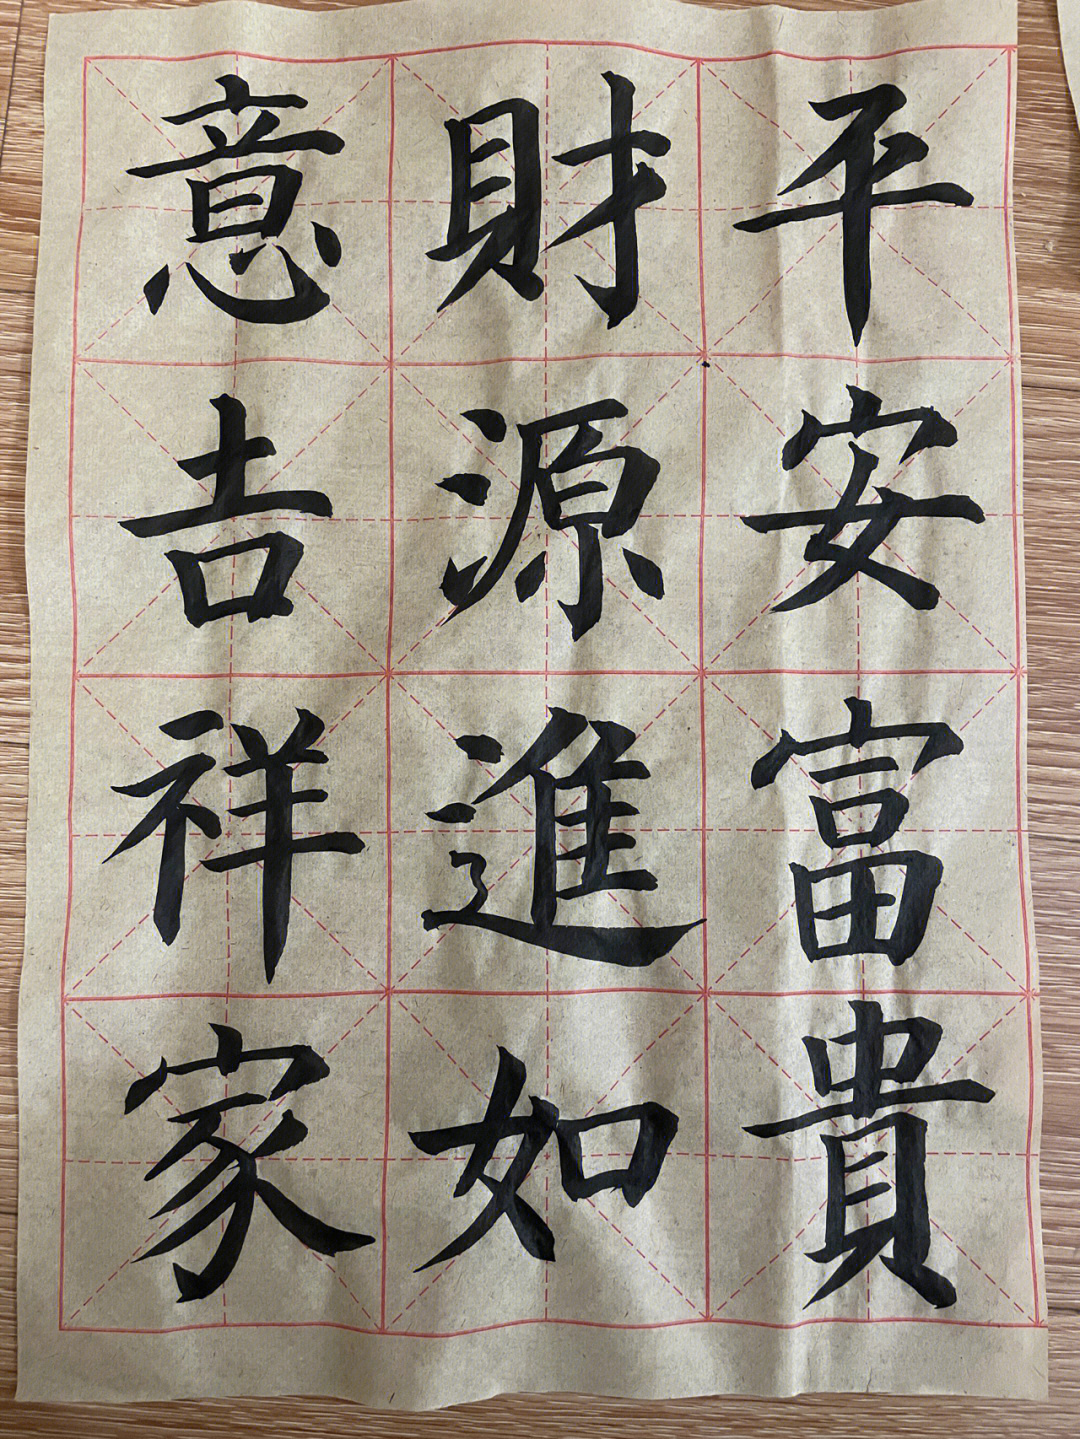 平安富貴
財源進如
意吉祥家